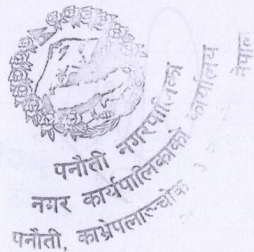 पनौती नगरपालिका
नगर कार्यपालिकाको कार्यालय
पनौती, काभ्रेपलाञ्चोक
नेपाल